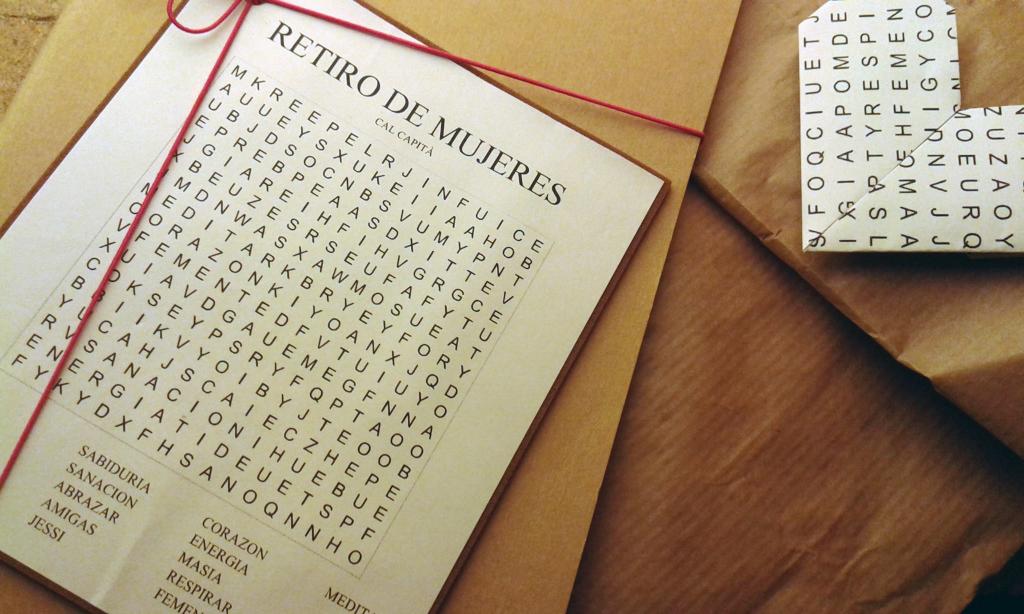 RETIRO DE MUJERES
CAL CAPITÀ
M K R E E P E L R J I N F U I C E
A U U E Y S X U K E I I A A H O B
U B J D S O C N B S V U M Y P N T
E P R E B P E A A S D X I T T E V
J G I A R E I H F I H V G R G C E
X B E U Z E S R S E U F A F Y T U
M D N W A S X A W M O S U E A T
M E D I T A R K B R Y E Y F O R Y
O R A Z O N K I Y O A N X J Q D
V F E M E N T E D F V T U I U Y O
X U I A V D G A U E M E G F N N A
C D K S E Y P S R Y F Q P T A O O
B B I I K V Y O I B Y J T E O O B
Y U C A H J S C A I E C Z H E P E
R V S A N A C I O N I H U E B U E
E N E R G I A T I D E U E T S P F
F Y K Y D X F H S A N O Q N N H O
SABIDURIA
SANACION
ABRAZAR
AMIGAS
JESSI
CORAZON
ENERGIA
MASIA
RESPIRAR
FEMEN
MEDITA
F O Q C I U E T
I G I A A P O M D E
T Y R E S P I
H F E M E N
N I G Y C O